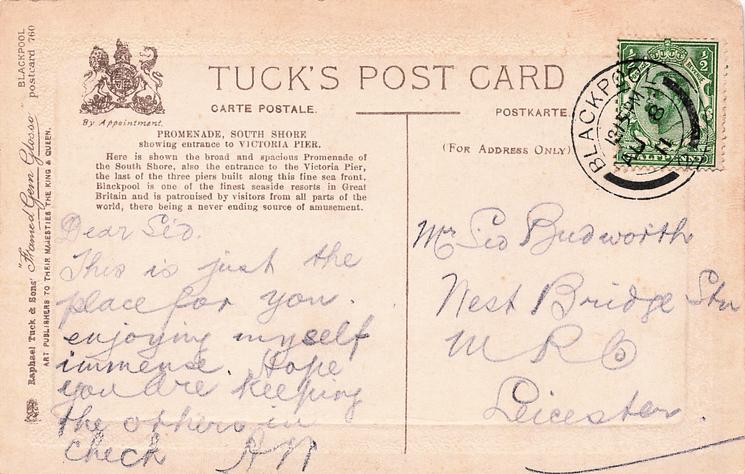 BLACKPOOL
postcard 760
Raphael Tuck & Sons' "Framed Gem Glosso"
ART PUBLISHERS TO THEIR MAJESTIES THE KING & QUEEN.
By Appointment.
TUCK'S POST CARD
CARTE POSTALE.
POSTKARTE.
(FOR ADDRESS ONLY)
PROMENADE, SOUTH SHORE
showing entrance to VICTORIA PIER.
Here is shown the broad and spacious Promenade of
the South Shore, also the entrance to the Victoria Pier,
the last of the three piers built along this fine sea front.
Blackpool is one of the finest seaside resorts in Great
Britain and is patronised by visitors from all parts of the
world, there being a never ending source of amusement.
BLACKPOOL
AU 8
11
HALFPENNY
Dear Sid.
This is just the
place for you.
enjoying myself
immense. Hope
you are keeping
the others in
check
Mr Sid Budworth
West Bridge Stn
M R Co
Leicester.